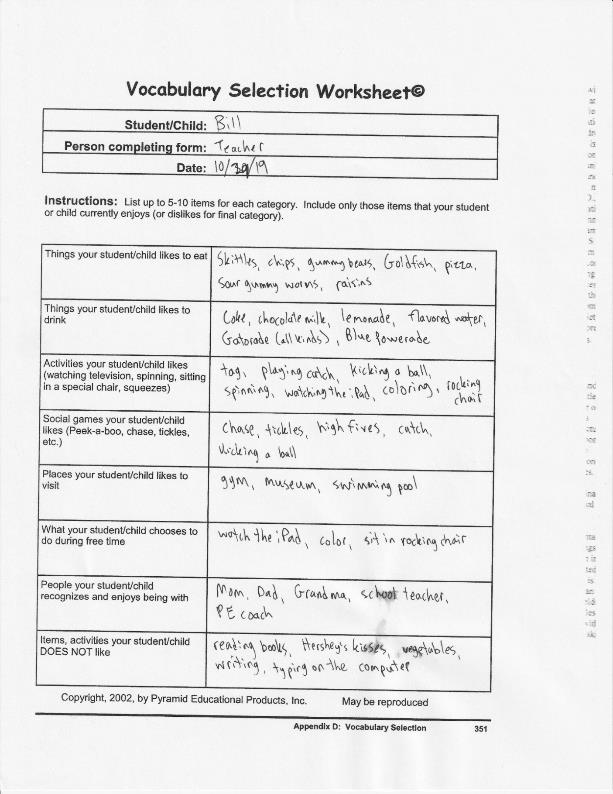 Vocabulary Selection Worksheet©
Student/Child: Bill
Person completing form: Teacher
Date: 10/30/19
Instructions: List up to 5-10 items for each category. Include only those items that your student
or child currently enjoys (or dislikes for final category).
Things your student/child likes to eat
Skittles, chips, gummy bears, Goldfish, pizza,
sour gummy worms, raisins
Things your student/child likes to
drink
Coke, chocolate milk, lemonade, flavored water,
Gatorade (all kinds), Blue Powerade
Activities your student/child likes
(watching television, spinning, sitting
in a special chair, squeezes)
tag, playing catch, kicking a ball,
spinning, watching the iPad, coloring, rocking
chair
Social games your student/child
likes (Peek-a-boo, chase, tickles,
etc.)
chase, tickles, high fives, catch,
kicking a ball
Places your student/child likes to
visit
gym, museum, swimming pool
What your student/child chooses to
do during free time
watch the iPad, color, sit in rocking chair
People your student/child
recognizes and enjoys being with
Mom, Dad, Grandma, school teacher,
PE coach
Items, activities your student/child
DOES NOT like
reading books, Hershey's kisses, vegetables,
writing, typing on the computer
Copyright, 2002, by Pyramid Educational Products, Inc. May be reproduced
Appendix D: Vocabulary Selection 351